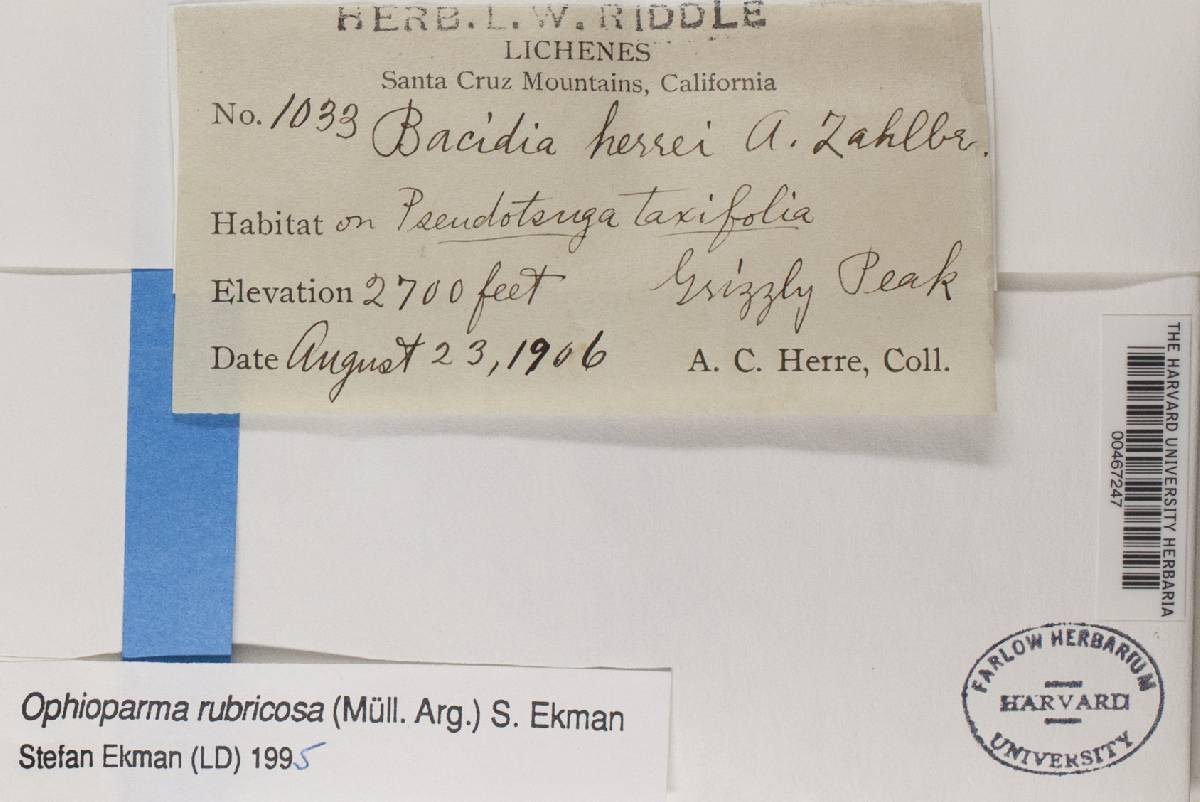 HERB. L. W. RIDDLE
LICHENES
Santa Cruz Mountains, California
No. 1033 Bacidia herrei A. Zahlbr.
Habitat on Pseudotsuga taxifolia
Elevation 2700 feet Grizzly Peak
Date August 23, 1906 A. C. Herre, Coll.
THE HARVARD UNIVERSITY HERBARIA
00467247
FARLOW HERBARIUM
HARVARD
UNIVERSITY
Ophioparma rubricosa (Müll. Arg.) S. Ekman
Stefan Ekman (LD) 1995